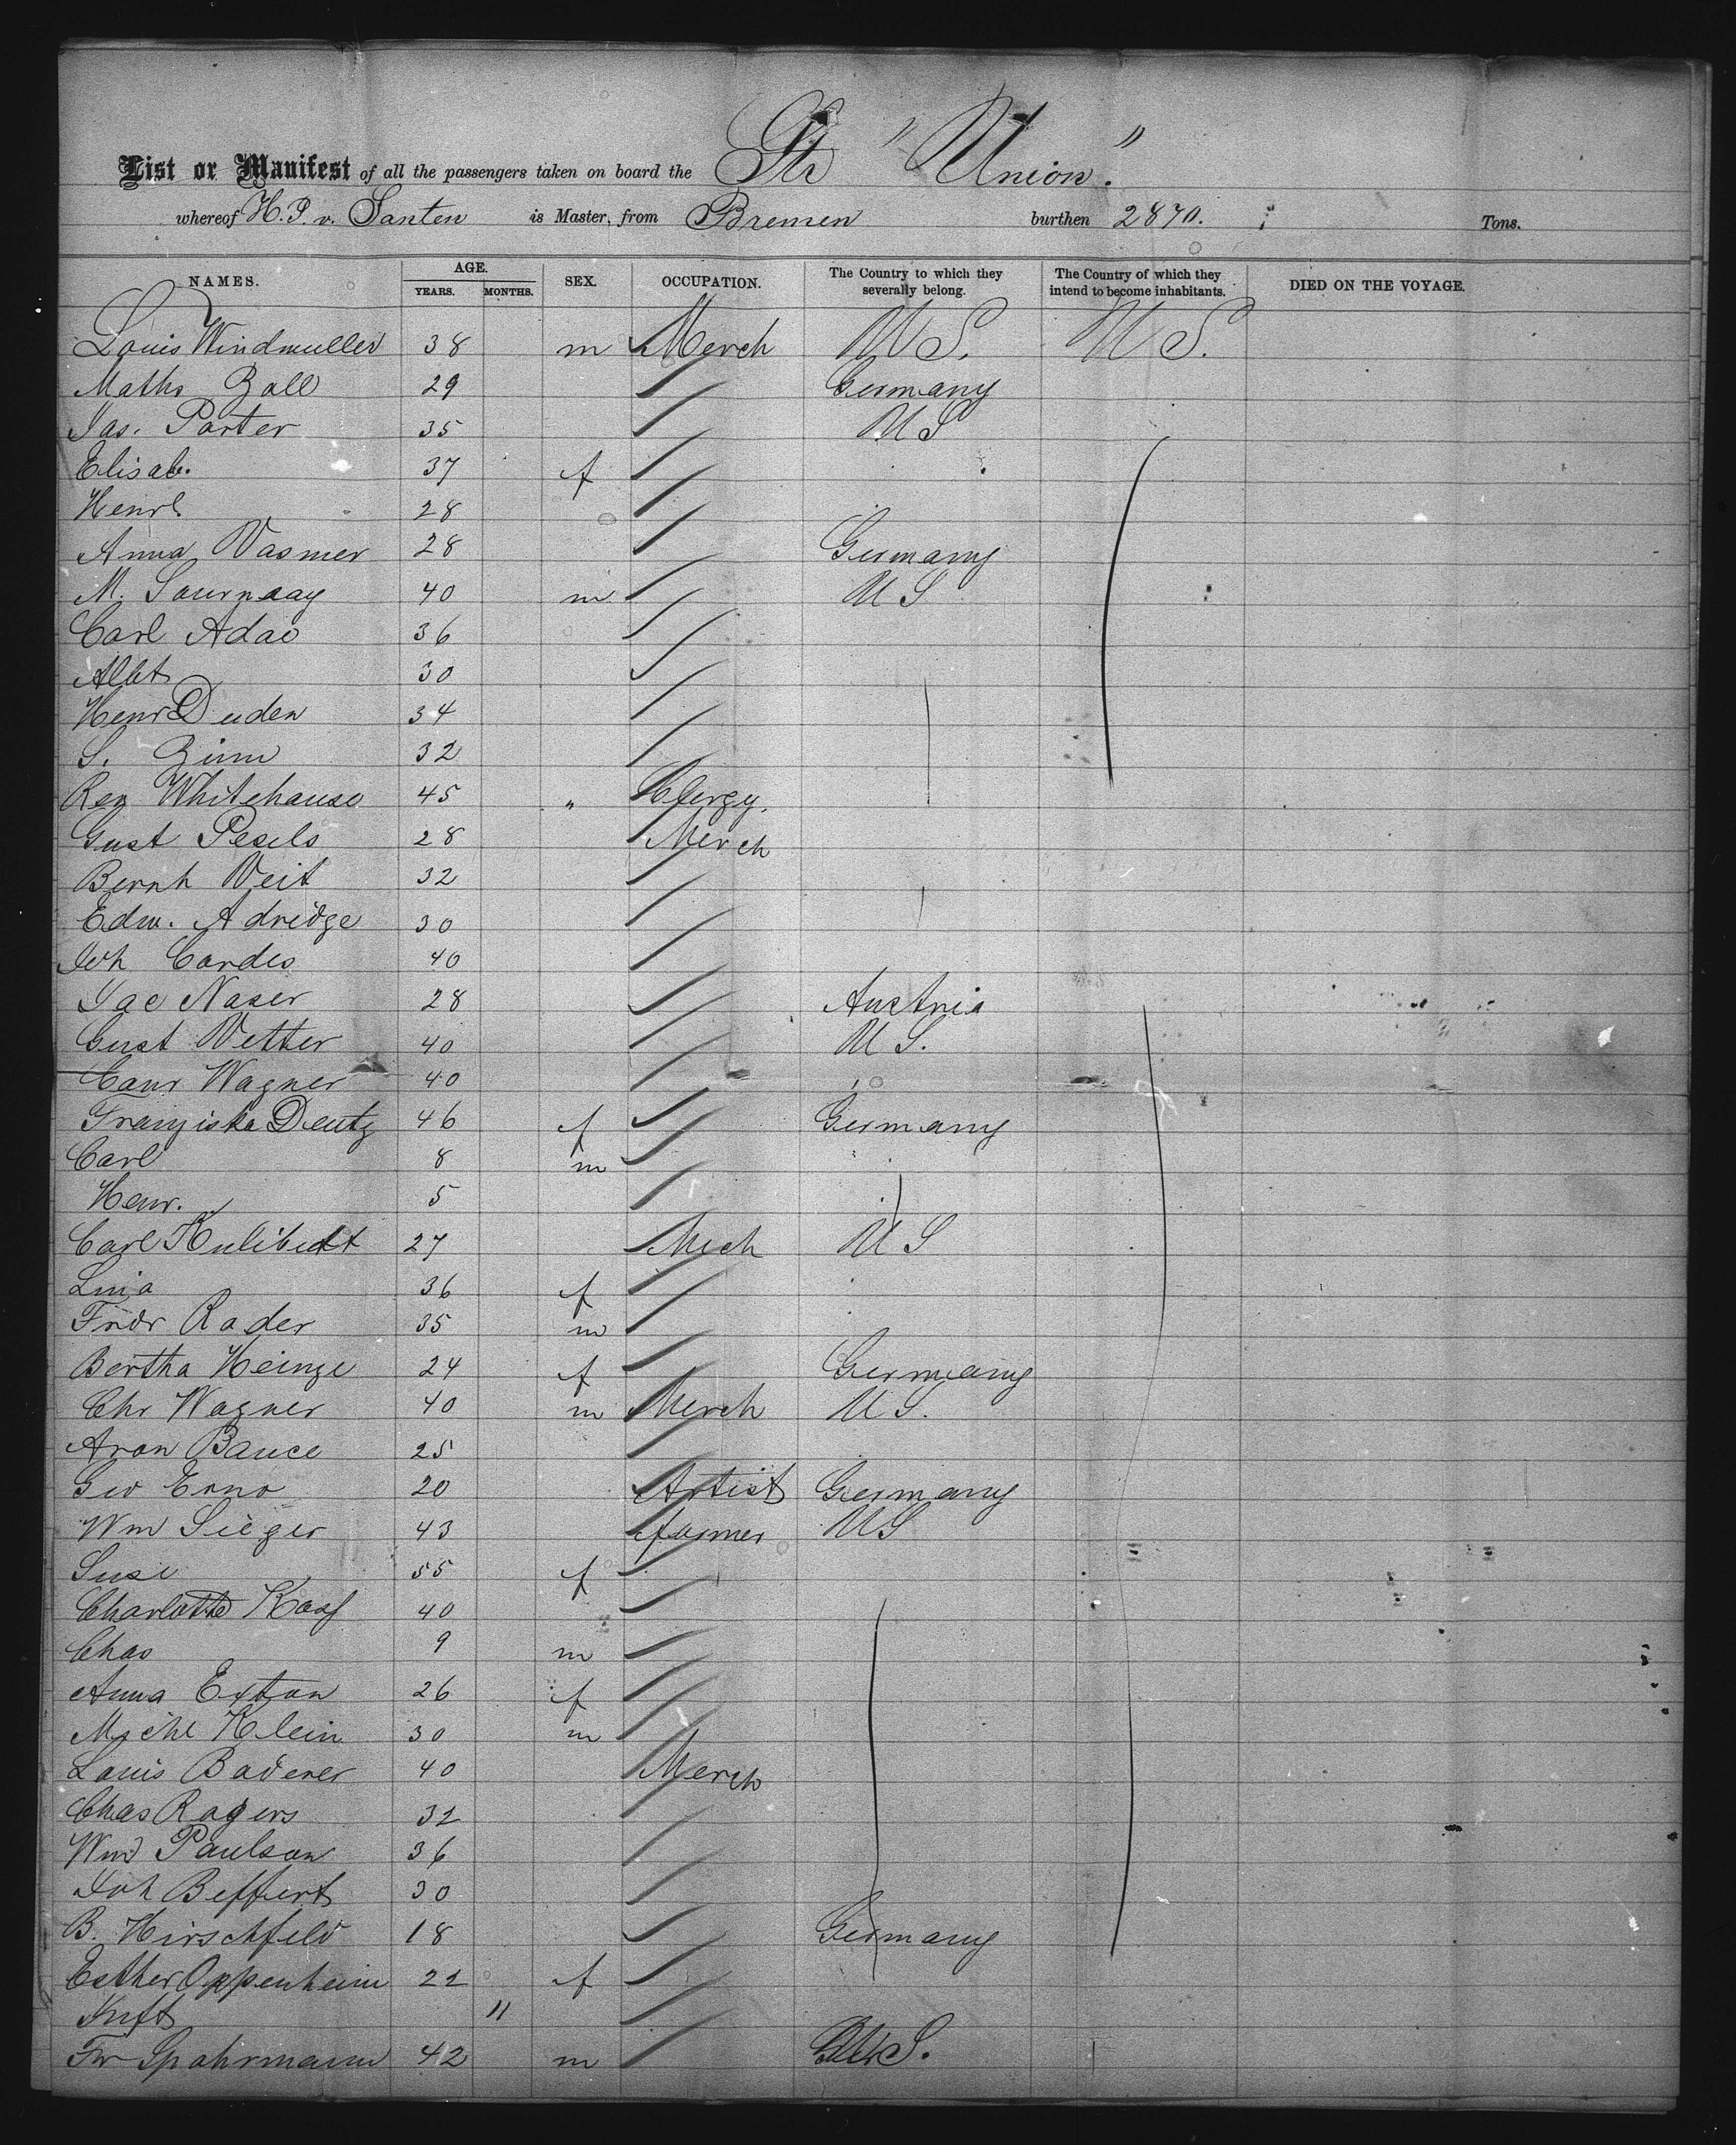 List or Manifest of all the passengers taken on board the Str "Union."
whereof H. P. v. Santen is Master, from Bremen burthen 2870. Tons.
NAMES. AGE. YEARS. MONTHS. SEX. OCCUPATION. The Country to which they severally belong. The Country of which they intend to become inhabitants. DIED ON THE VOYAGE.
Louis Windmuller 38 m Merch U S. U S.
Maths Zoll 29 Germany
Jas. Porter 35 U S
Elisab. 37 f
Henrt 28
Anna Vasmer 28 Germany
M. 40 m U S
Carl Adae 36
Albt 30
Henr Duden 34
S. Zinn 32
Rev Whitehouse 45 " Clergy.
Gust Pesels 28 Merch
Bernh Veit 32
Edw. Adridge 30
Joh Cordes 40
Jac Naser 28 Austria
Gust Vetter 40 U S.
Conr Wagner 40
Franziska Deutz 46 f Germany
Carl 8 m
Henr. 5
Carl 27 Mech U S
Lina 36 f
Friedr Rader 35 m
Bertha Heinze 24 f Germany
Chr Wagner 40 m Merch U S.
Aron Bauce 25
Geo 20 Artist Germany
Wm Sieger 43 farmer U S
Suse 55 f
Charlotte 40
Chas 9 m
Anna Exton 26 f
Michl Klein 30 m
Louis Badener 40 Merch
Chas Rogers 32
Wm Paulson 36
Joh Beffert 30
B. Hirschfeld 18 Germany
Esther Oppenheim 22 f
Inft 11
Fr Spohrmann 42 m U S.